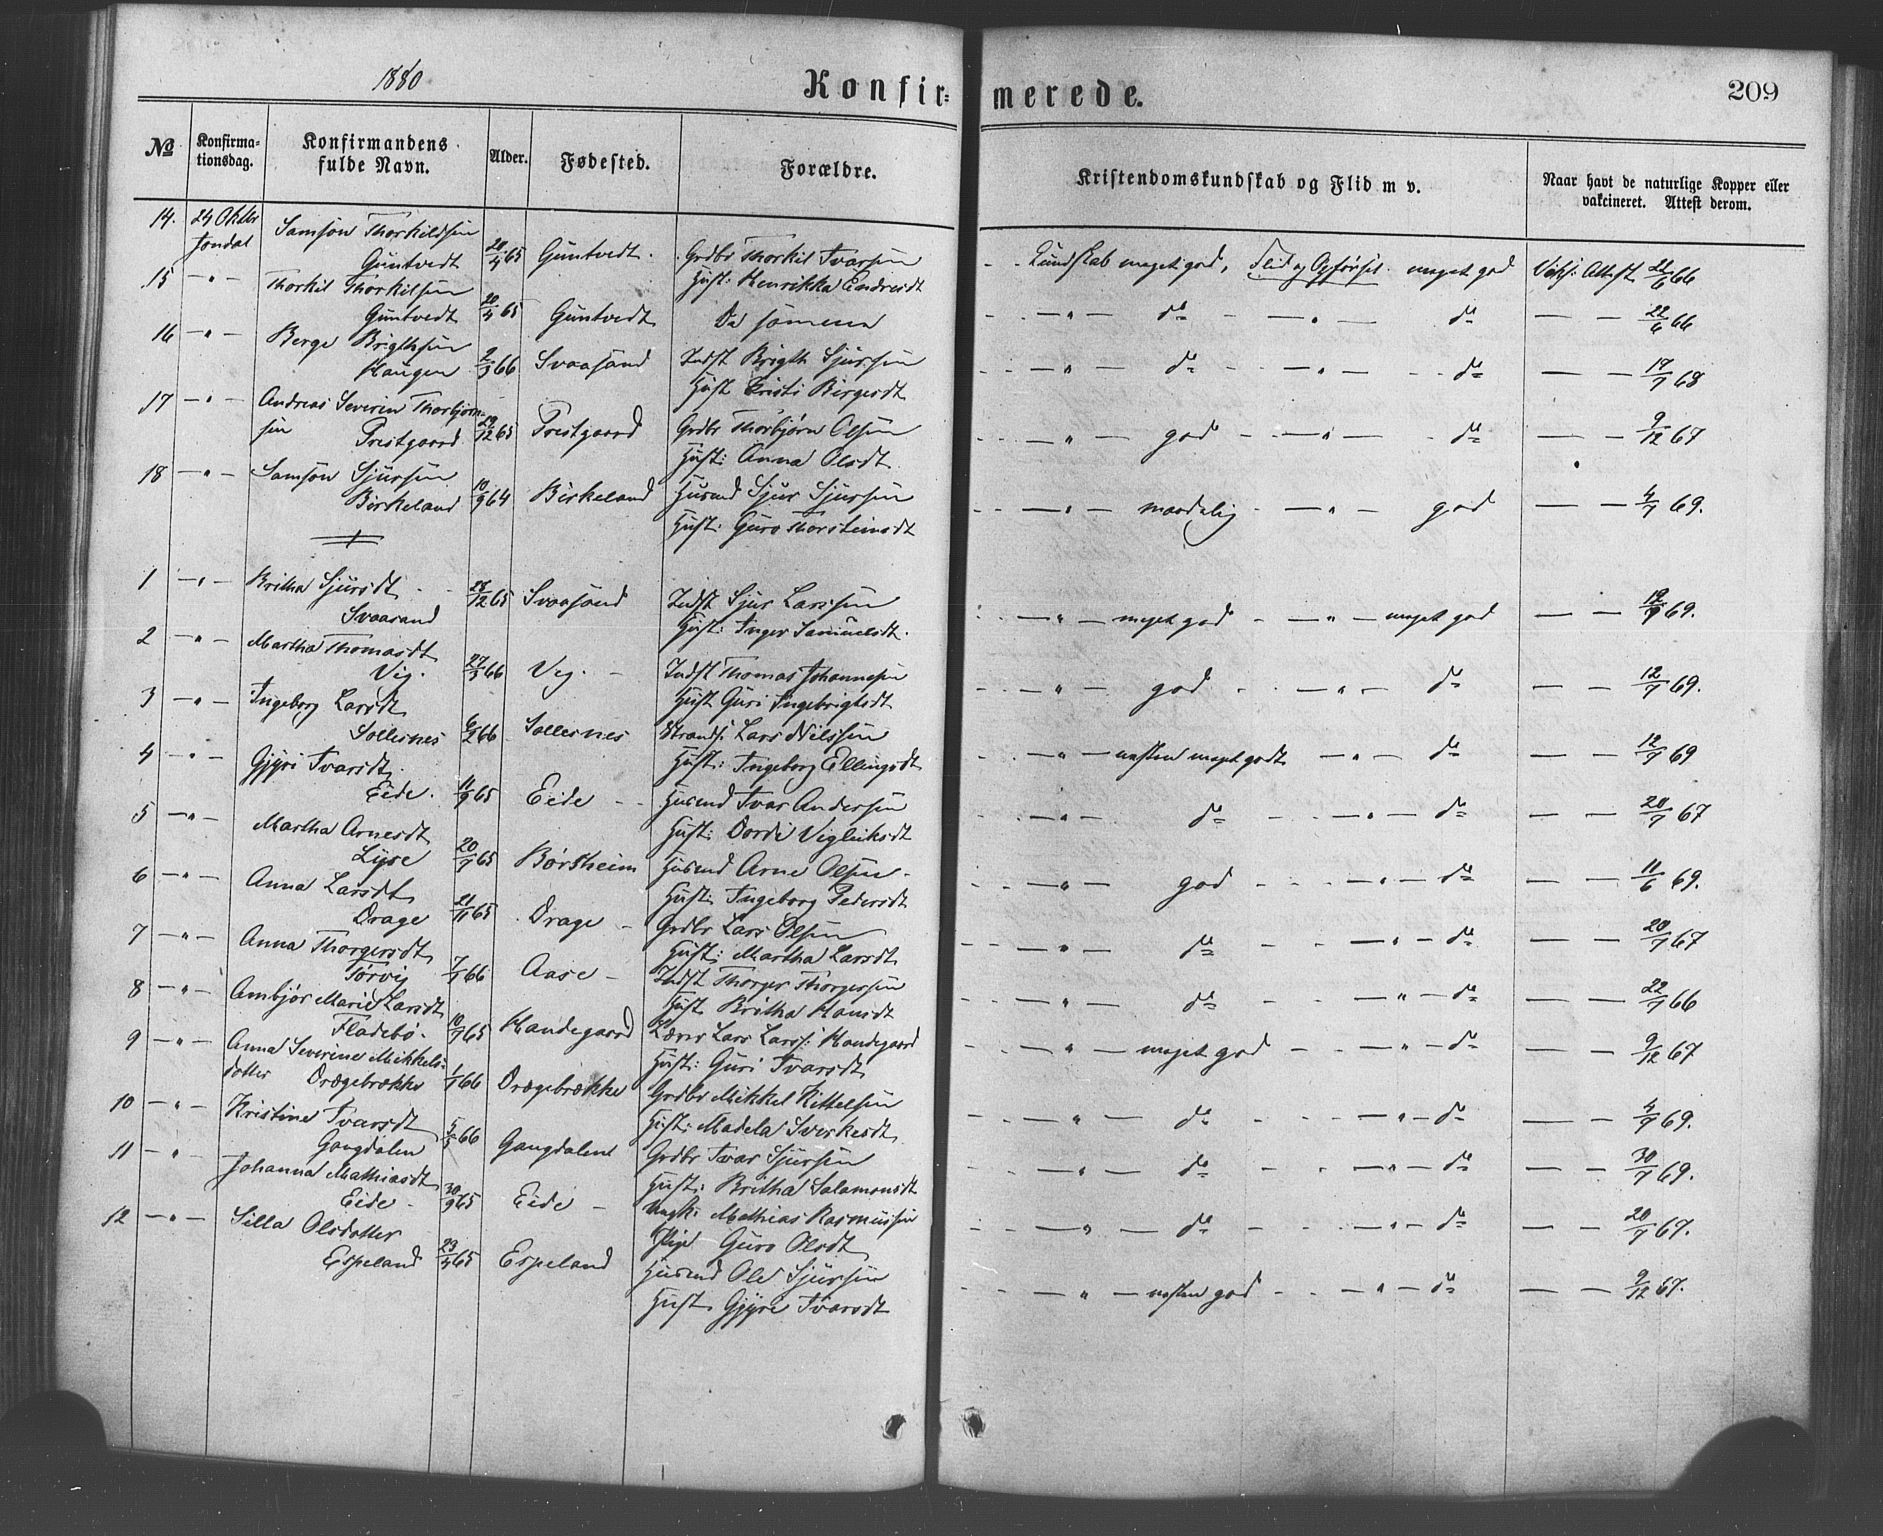 1880
Konfir-
merede.
209
No
Konfirma-
tionsdag.
Konfirmandens
fulde Navn.
Alder.
Fødested.
Forældre.
Kristendomskundskab og Flid m v.
Naar havt de naturlige Kopper eller
vakcineret. Attest derom.
14. 24 Oktbr Samson Thorkildsen
Jondal Guntvedt 20/4 65 Guntvedt. Grdbr Thorkil Ivarsen Kundskab meget god, Flid og Opførsel meget god Vaks. Attest 22/6 66
15 -"- Thorkil Thorkilsen Hust: Henrikka Endresdt
Guntvedt 20/4 65 Guntvedt De samme -"- do -"- do 22/6 66
16 -"- Berge Brigthsen Indst Brigth Sjursen
Haugen 2/3 66 Svaasand Hust Kristi Birgesdt -"- do -"- do 17/7 68
17 -"- Andreas Severin Thorbjørn- Grdbr Thorbjørn Olsen
sen Prestgaard 29/12 65 Prestgaard Hust: Anna Olsdt -"- god -"- do 9/12 67
18 -"- Samson Sjursen Husmd Sjur Sjursen
Birkeland 10/9 64 Birkeland Hust: Guro Thorsteinsdt -"- maadelig -"- god 4/7 69.
1 -"- Britha Sjursdt 28/12 65 Svaasand Indst Sjur Larssen
Svaasand Hust: Inger Samuelsdt. -"- meget god -"- meget god 12/7 69.
2 -"- Martha Thomasdt
Vig. 27/3 66 Vig. Indst Thomas Johannesen -"- god -"- do 12/7 69.
3 -"- Ingeborg Larsdt Hust Guri Ingebrigtsdt
Sollesnes 6/2 66 Sollesnes Strands: Lars Nilssen -"- næsten meget godt -"- do 12/7 69
4 -"- Gjyri Ivarsdt Hust: Ingeborg Ellingsdt
Eide. 11/9 65 Eide Husmd Ivar Andersen -"- do -"- do 20/7 67
5 -"- Martha Arnesdt Hust: Dordi Vigleiksdt
Lyse 20/7 65 Børsheim Husmd Arne Olsen -"- god -"- do 11/6 69.
6 -"- Anna Larsdt Hust: Ingeborg Pedersdt
Drage 21/11 65 Drage Grdbr Lars Olsen -"- do -"- do 20/7 67
7 -"- Anna Thorgersdt Hust: Martha Larsdt
Tørvig 7/1 66 Aase Indst Thorger Thorgersen -"- do -"- do 22/7 66
8 -"- Ambjør Marie Larsdt Hust Britha Hansdt
Fladebø. 10/7 65 Handegaard Lærer Lars Larss: Handegaard -"- meget god -"- do 9/12 67
9 -"- Anna Severine Mikkels- Hust: Guri Ivarsdt
dotter Drægebrekke 1/1 66 Drægebrekke Grdbr Mikkel Kittelsen -"- do -"- do 4/7 69.
10 -"- Kristine Ivarsdt Hust: Madela Sverkesdt
Gangdalen 5/5 66 Gangdalen Grdbr Ivar Sjursen -"- do -"- do 30/7 69.
11 -"- Johanna Mathiasdt Hust: Britha Salamonsdt
Eide 30/9 65 Eide Ungk: Mathias Rasmussen -"- do -"- do 20/7 67.
12 -"- Silla Olsdotter Pige Guro Olsdt
Espeland 23/4 65 Espeland Husmd Ole Sjursen -"- næsten god -"- do 9/12 67.
Hust Gjyri Ivarsdt